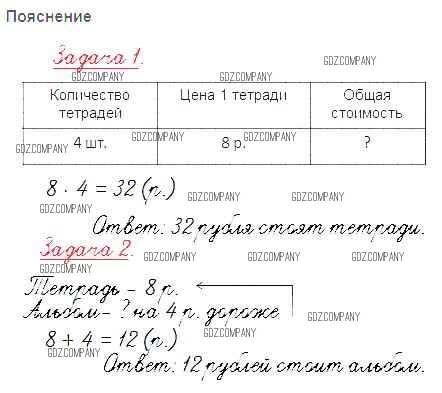 Пояснение
Задача 1.
GDZCOMPANY
GDZCOMPANY
Количество тетрадей
Цена 1 тетради
Общая стоимость
GDZCOMPANY
GDZCOMPANY
GDZCOMPANY
4 шт.
8 р.
?
8 · 4 = 32 (р.)
GDZCOMPANY
GDZCOMPANY
GDZCOMPANY
Ответ: 32 рубля стоят тетради.
Задача 2.
GDZCOMPANY
GDZCOMPANY
GDZCOMPANY
GDZCOMPANY
GDZCOMPANY
Тетрадь – 8 р.
Альбом – ? на 4 р. дороже
GDZCOMPANY
GDZCOMPANY
8 + 4 = 12 (р.)
GDZCOMPANY
Ответ: 12 рублей стоит альбом.